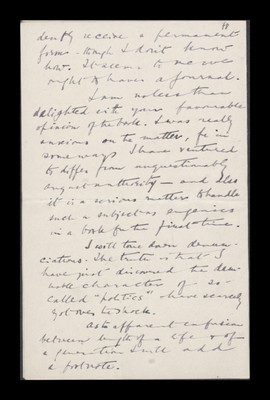 10
dently receive a permanent
form - though I don't know
how. It seems to me we
ought to have a journal.
I am no less than
delighted with your favourable
opinion of the book. I was really
anxious on the matter, for in
some ways I have ventured
to differ from unquestionably
august authority - and also
it is a serious matter to handle
such a subject as eugenics
in a book for the first time.
I will tone down denun-
ciations. The truth is that I
have just discovered the
character of so-
called "politics" - have scarcely
got over the shock.
As to apparent confusion
between length of a life & of
a generation I will add
a footnote.